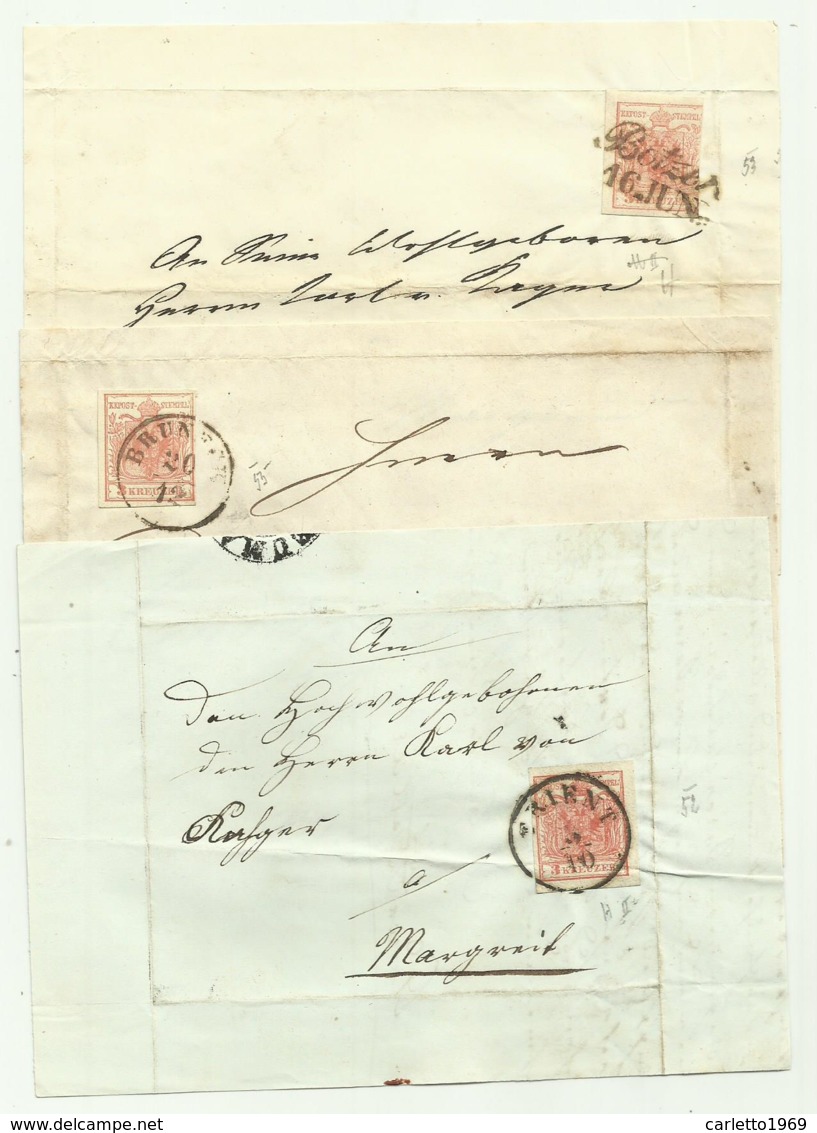 KKPOST-STEMPEL
Botzen
16. JUN:
53
An Seine Wohlgeboren
Herrn Karl v.
H
KKPOST-STEMPEL
BRUN
20
12
3 KREUZER
53
Herrn
UM
An
den Hochwohlgebohrnen
den Herrn Karl von
TRIENT
10
3 KREUZER
52
a
H II
Margreit
www.delcampe.net
carletto1969